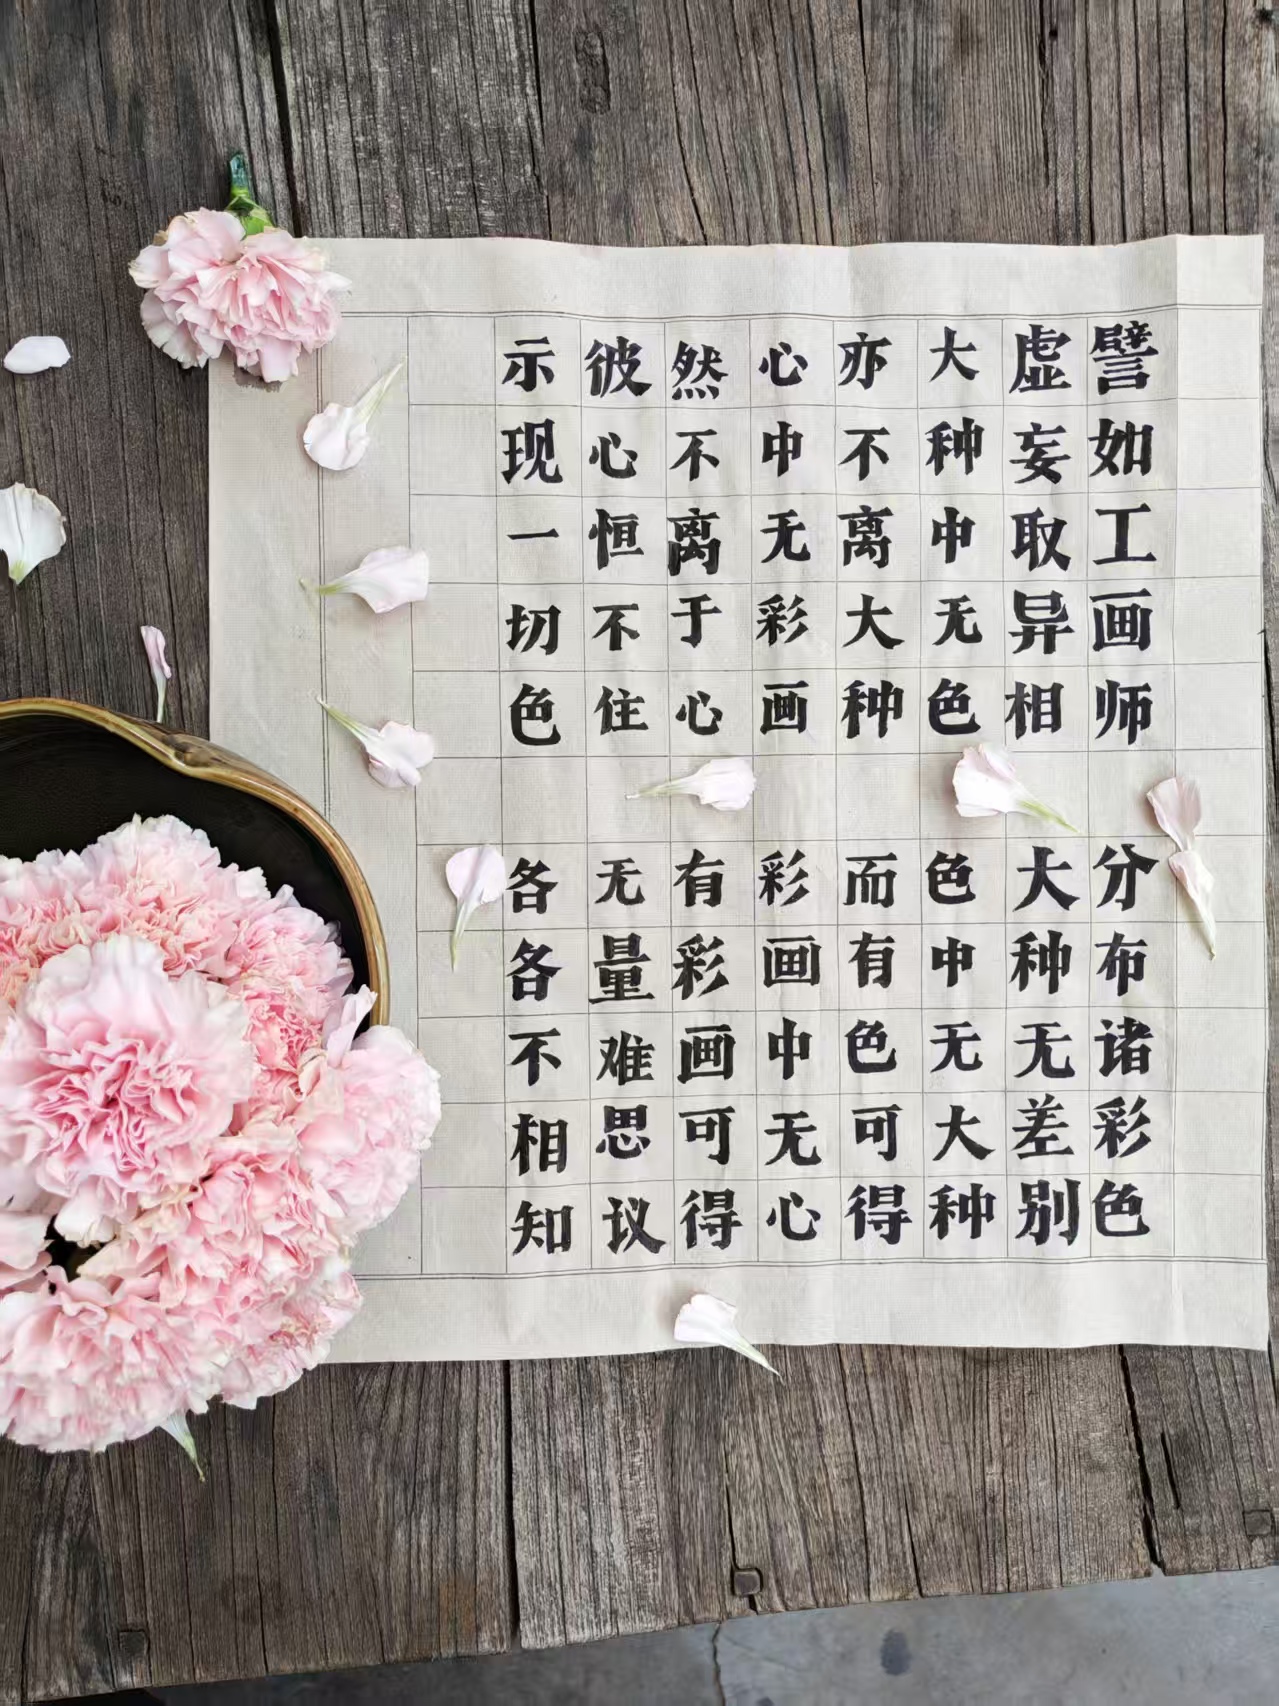 譬如工画师 分布诸彩色
虚妄取异相 大种无差别
大种中无色 色中无大种
亦不离大种 而有色可得
心中无彩画 彩画中无心
然不离于心 有彩画可得
彼心恒不住 无量难思议
示现一切色 各各不相知